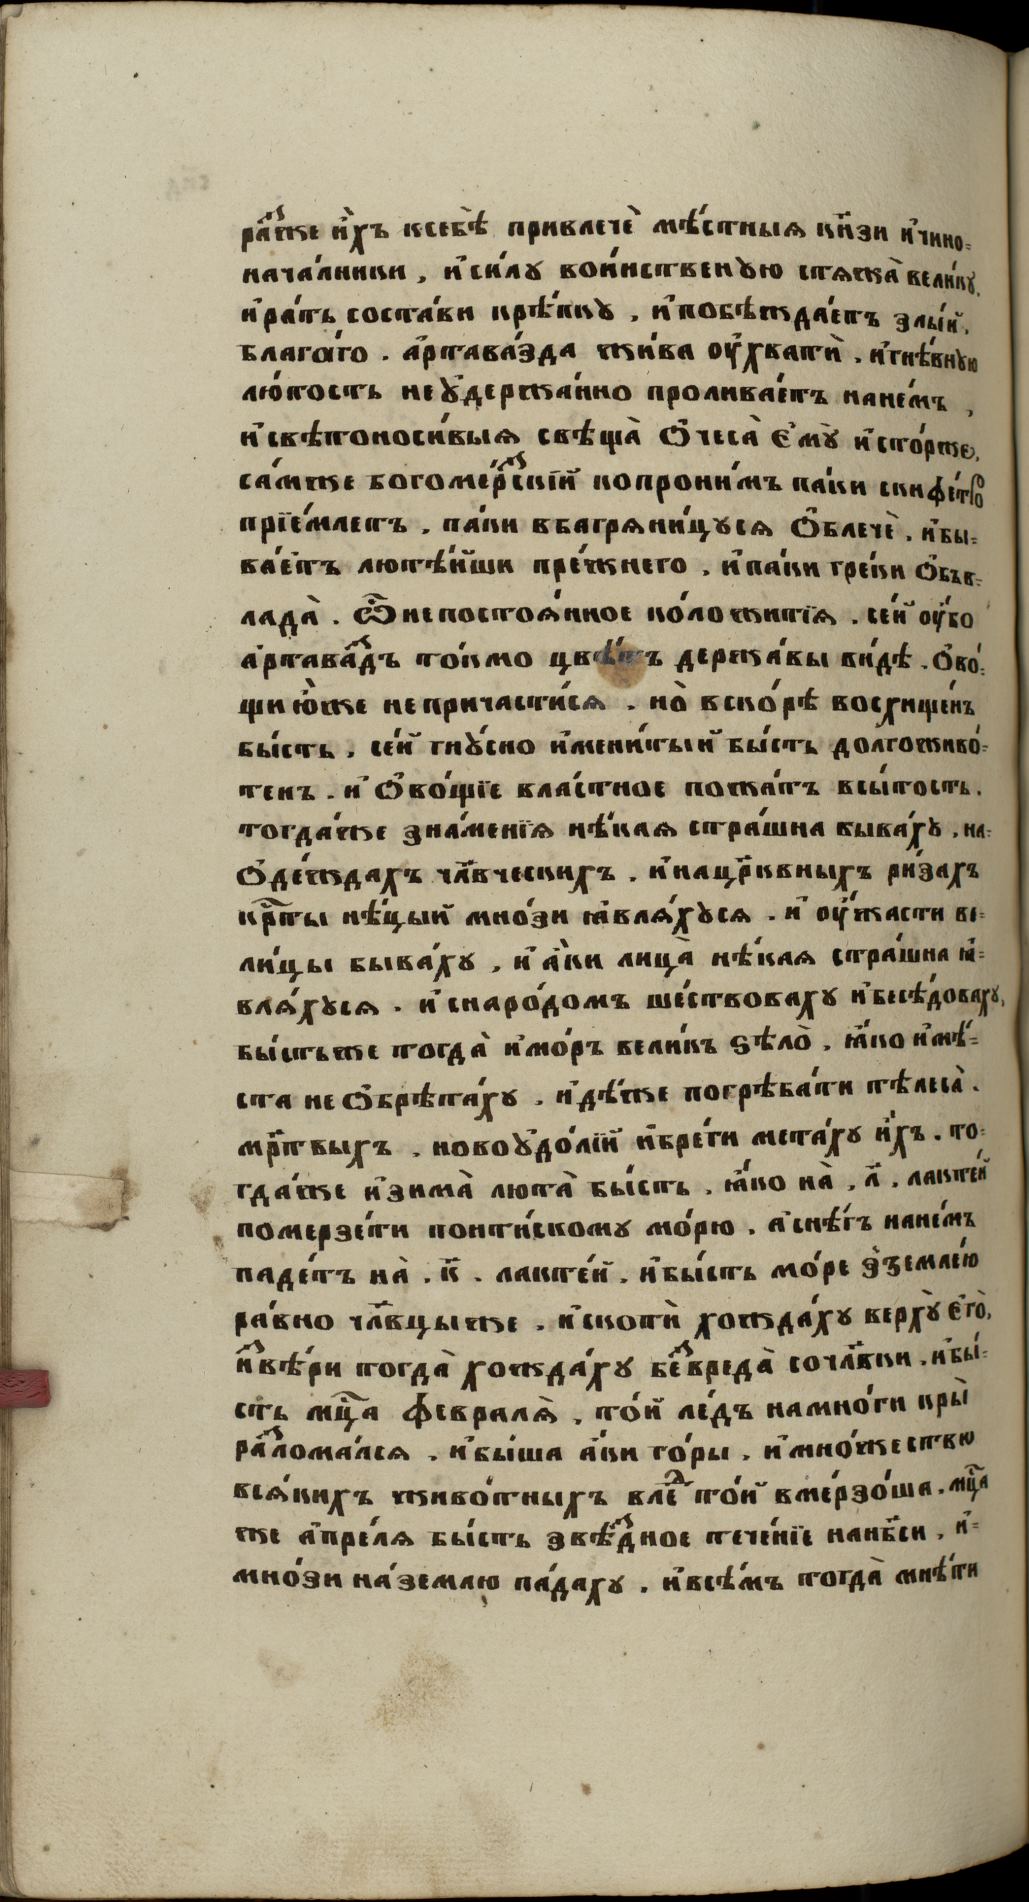 ра́зже и҆̀хъ ксебѣ̀ привлечѐ мѣ́стныѧ кн҃зи и҆чино=
нача́лники , и҆си́лу во́инственꙋю стѧжа̀ вели́кꙋ,
и҆ра́ть соста́ви крѣ́пкꙋ , и҆побѣжда́етъ злы́й,
благо́го . а҆ртава́зда жи́ва оу҆хватѝ . и҆гнѣ́внꙋю
лю́тость неꙋ҆держа́нно пролива́етъ нане́мъ ,
и҆свѣтоноси́выѧ свѣща̀ ѻ҆чеса̀ є҆мꙋ̀ и҆сто́рже,
са́мже богоме́рзскїй копрони́мъ па́ки скифе́тро
прїе́млетъ . па́ки вбагрѧни́цусѧ ѻ҆блечѐ . и҆бы=
ва́етъ лютѣ́йши пре́жнего . и҆па́ки гре́ки ѻ҆бъв=
лада̀ . ѽ непостоѧ́нное ко́ло житїѧ . се́й оу҆́бо
а҆ртава́здъ то́кмо цвѣ́тъ держа́вы ви́дѣ . ѻ҆во́=
щию́же непричасти́сѧ . но̀ вско́рѣ восхище́нъ
бы́сть . се́й гнꙋ́сно и҆мени́тый бы́сть долгоживо́=
тенъ . и҆ ѻ҆во́щїе вла́стное пожа́тъ всы́тость .
тогда́же зна́менїѧ нѣ́каѧ стра́шна быва́хꙋ . на=
ѻ҆де́ждахъ чл҃вческихъ . и҆нацр҃ковныхъ ри́захъ
кр҃ты нѣ́цый мно́зи ꙗ҆влѧ́хусѧ . и҆ оу҆́жасти ве=
ли́цы быва́ху , и҆ а҆́ки лица̀ нѣ́каѧ стра́шна ꙗ҆=
влѧ́хусѧ . и҆ снаро́домъ ше́ствоваху и҆бесѣ́доваху,
бы́стьже тогда̀ и҆мо́ръ вели́къ ѕѣло̀ . ꙗ҆́ко и҆мѣ́=
ста не ѻ҆брѣта́ху . и҆дѣ́же погрѣба́ти тѣлеса̀ .
мр҃твыхъ . новоꙋ҆до́лїй и҆бре́ги мета́ху и҆̀хъ . то=
гда́же и҆зима̀ люта̀ бы́сть . ꙗ҆́ко на̀ . л҃ . лакте́й
помер­зе́ти понти́скому мо́рю . а҆снѣ́гъ нане́мъ
паде́тъ на̀ . к҃ . лакте́й . и҆бы́сть мо́ре з̾землею́
ра́вно чл҃вцыже . и҆скотѝ хожда́ху верхꙋ̀ є҆гѡ̀,
и҆звѣ́ри тогда̀ хожда́ху безвреда̀ сочл҃вки . и҆бы́=
сть мц҃а февралѧ̀ . то́й ле́дъ намно́ги кры̀
разлома́лсѧ . и҆бы́ша а҆́ки го́ры . и҆мно́жество
всѧ́кихъ живо́тныхъ вле́дъ то́й вмерзо́ша . мц҃а
же а҆прелѧ бы́сть звѣ́здное тече́нїе нанб҃си . и҆=
мно́зи на́землю па́даху . и҆всѣ́мъ тогда̀ мнѣ́ти